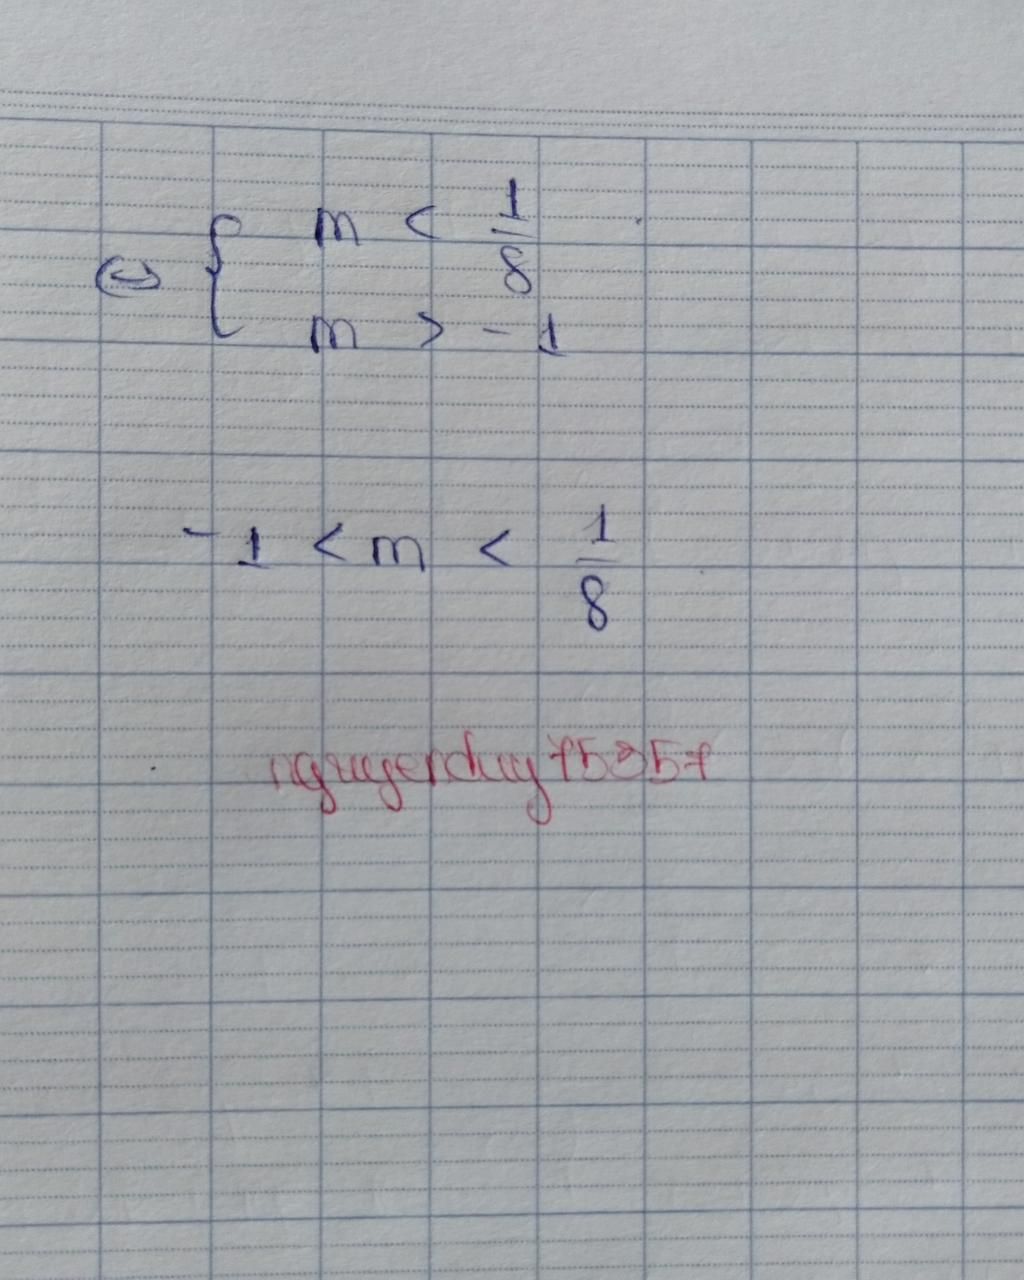 ⇔ { m < 1/8
m > - 1
- 1 < m < 1/8
nguyenduy75357